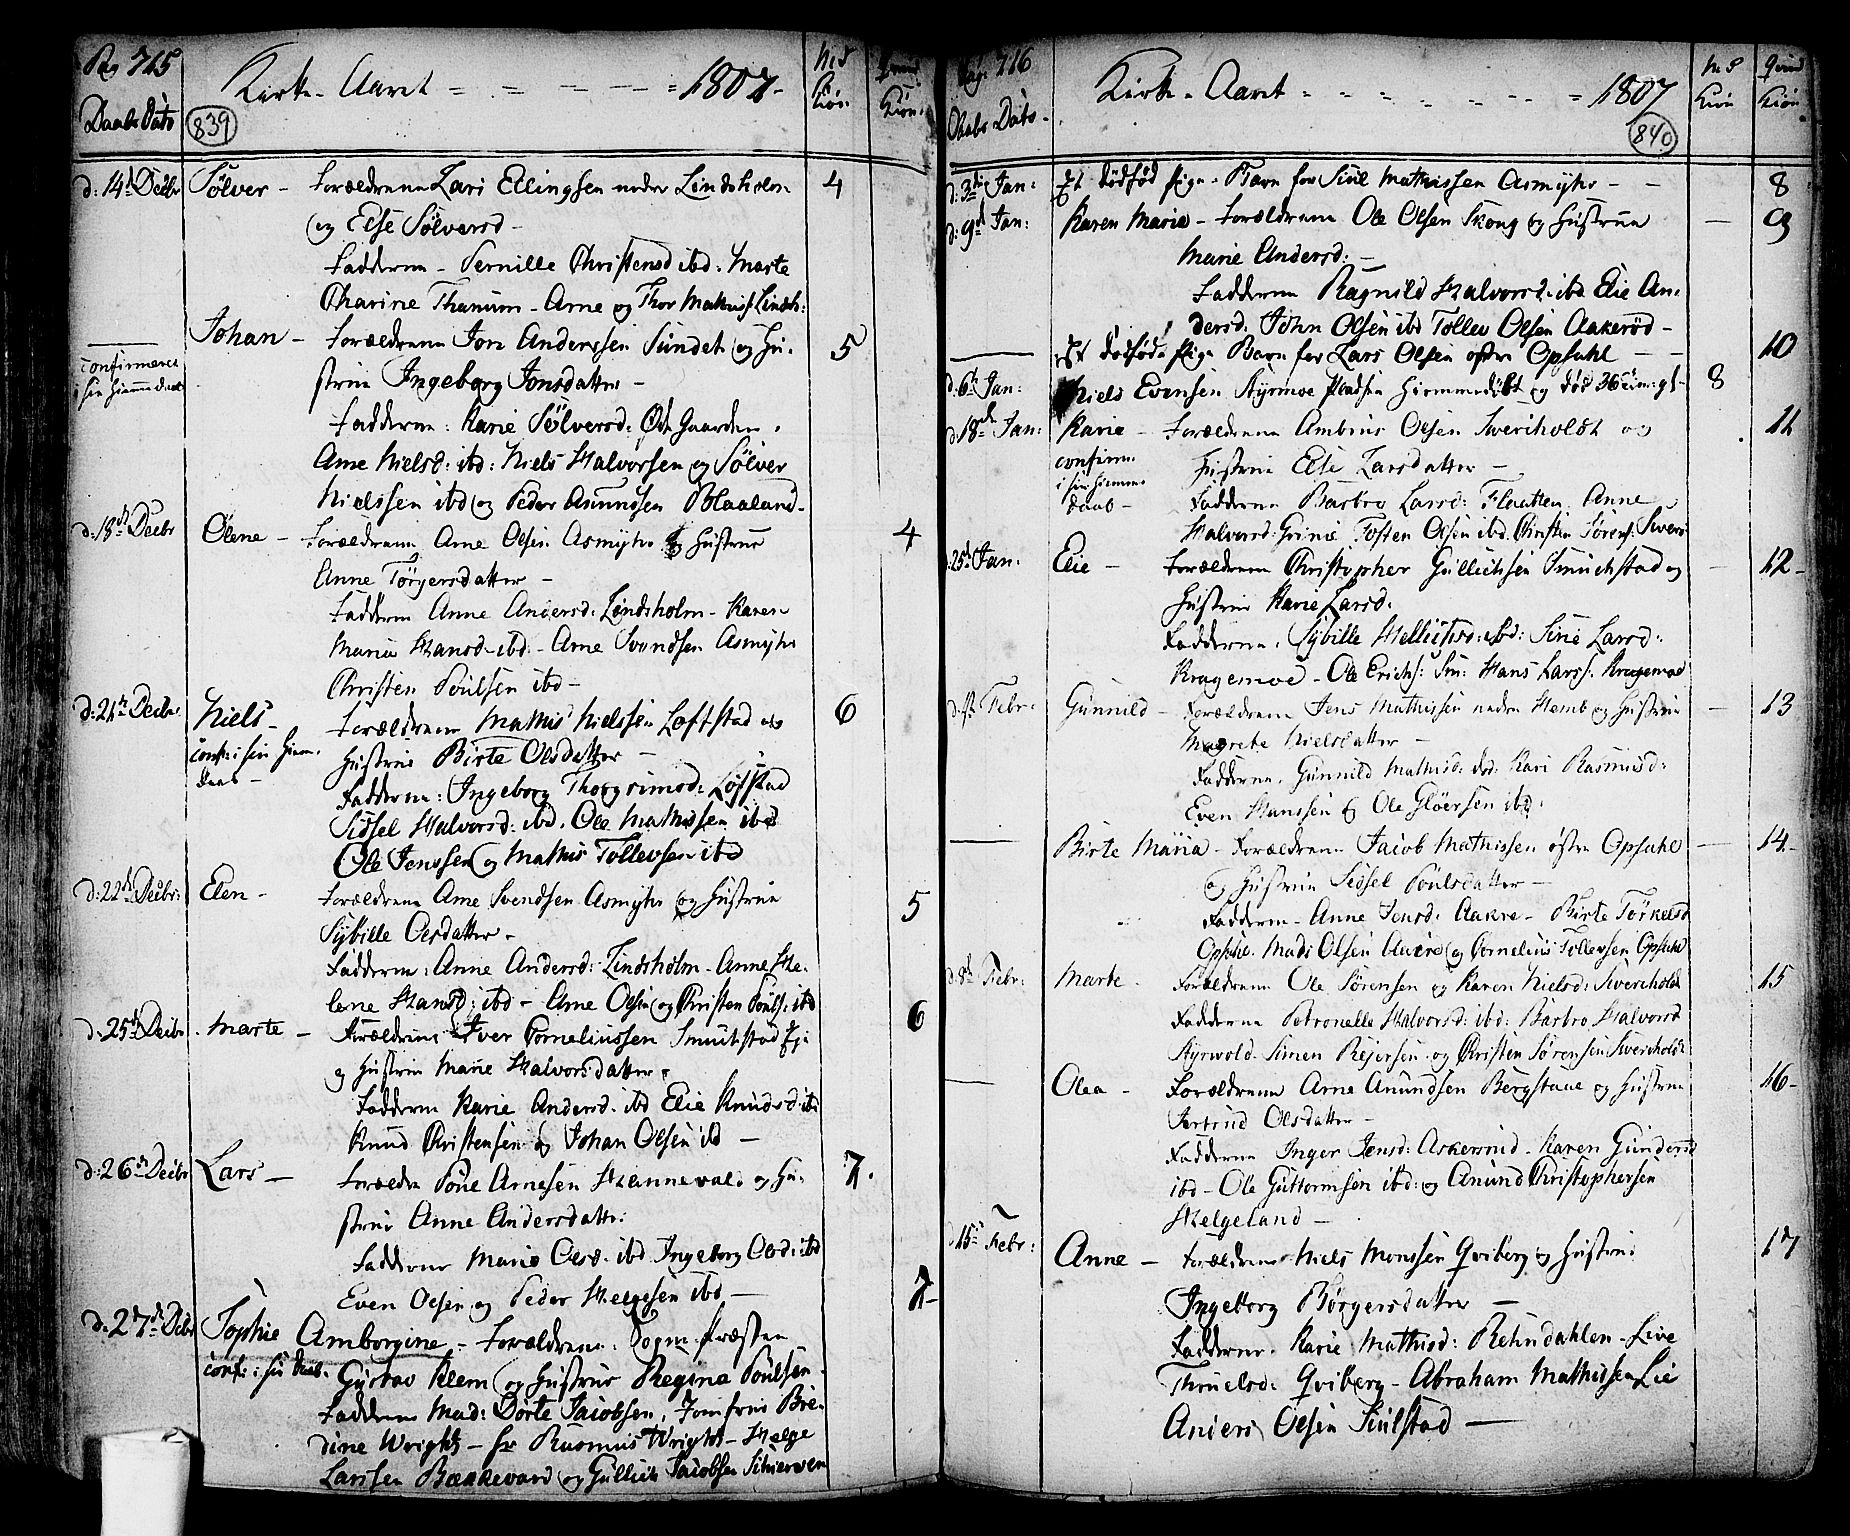 Pag 715
Kirke-Aaret - - - - - 1807-
M:S Kiøn:
Qvind Kiøn:
Daabs Dato
839
d: 14d Decbr Sølver - Forældrene Lars Ellingsen nedre Lindsholm 4
og Else Sølversd -
Fadderne - Pernille Christensd ibd: Marte
Charine Thanum - Arne og Thor Mathiss: Lindsh:
Johan - Forældrene Jon Anderssen Sundet og Hu- 5
confirmeret
i sin Hiemmedaab
strue Ingeborg Jonsdatter -
Fadderne: Karie Sølversd: Øde Gaarden.
Anne Nielsd: ibd: Niels Halvorsen og Sølver
Nielssen ibd og Peder Asmundsen Blaaland -
d: 18d Decbr Olene - Forældrene Arne Olsen Asmyhr og Hustrue 4
Anne Törgersdatter -
Fadderne Anne Andersd: Lindsholm - Karen
Maria Hansd ibd - Arne Svendsen Asmyhr
Christen Poulsen ibd -
d: 21d Decbr Niels - Forældrene Mathis Nielssen Løfstad og 6
conf: i sin Hiem.
daab -
Hustrue Birte Olsdatter -
Fadderne: Ingeborg Thorgrimsd: Løfstad
Sidsel Halvorsd: ibd. Ole Mathissen ibd
Ole Jenssen og Mathis Tollevsen ibd
d: 22d Decbr: Elen - Forældrene Arne Svendsen Asmyhr og Hustrue 5
Sybille Olsdatter -
Fadderne: Anne Andersd: Lindsholm - Anne He-
lene Hansd: ibd - Arne Olsen og Christen Pouls: ibd
d: 25d Decbr. Marte - Forældrene Iver Corneliussen Smukstad Ej: 6
og Hustrue Marie Halvorsdatter -
Fadderne Karie Andersd. ibd Elie Knudsd ibd
Knud Christensen og Johan Olsen ibd -
d: 26d Decbr Lars - Forældre Pove Arnesen Hannevald og Hu- 7.
strue Anne Andersdatter:
Fadderne Marie Olsd. ibd Ingeborg Olsd: ibd
Even Olsen og Peder Helgesen ibd -
d: 27d Decbr Sophie Amborgine - Forældrene: Sogne Præsten 7-
conf: i sin Daab.
Gustav Klem og Hustrue Regine Poulsen -
Fadderne Mad: Dorte Jacobsen, Jomfrue Bre-
dine Wright - hr Rasmus Wright - Helge
Larssen Bækkevard og Gullich Jacobsen Schierven
Pag. 716
Kirke-Aaret - - - - - 1807
M:S Kiøn
Qvind Kiøn:
Daabs Dato -
840
d: 3die Jan: Et dødfød Pige-Barn for Sivel Mathissen Asmyhr - - 8
d: 9d Jan: Karen Marie - Forældrene Ole Olsen Skoug og Hustrue - 9
Marie Andersd: -
Fadderne Ragnild Halvorsd. ibd Elie An-
dersd. John Olsen ibd Tollev Olsen Aakerød -
Et dødfød Pige Barn for Lars Olsen østre Opsahl - - 10
d: 6t Jan: Niels Evensen Styrmoe Pladsen hiemmedøbt og død 36 8
d: 18de Jan: Karie - Forældrene Ambiør Olsen Sverholdt og 11
confirm.
i sin Hiemme
daab -
Hustrue Else Larsdatter -
Fadderne Barbro Larsd: Flautten. Anne
Halvorsd: Grinie Tosten Olsen ibd. Christen Sørens: Sver:
d: 25d Jan: Elie - Forældrene Christopher Gullichsen Smuckstad og - 12-
Hustrue Karie Larsd.
Fadderne: Sybille Hellichsd: ibd: Sivie Larsd:
Kragemoe - Ole Erichs: Sm: Hans Larss: Kragemoe
d: 1st Febr: Gunnild - Forældrene Jens Mathissen nedre Hemb og Hustrue - 13
Magrete Nielsdatter -
Fadderne. Gunnild Mathisd: ibd: Kari Rasmusd:
Even Hanssen og Ole Gløersen ibd:
Birte Maria - Forældrene Jacob Mathissen østre Opsahl - 14-
og Hustrue Sidsel Poulsdatter -
Fadderne - Anne Jensd: Aakre - Birte Törkelsd
Opsahl. Mads Olsen Aakre og Cornelius Tollevsen Opsahl
d: 8d Febr: Marte - Forældrene Ole Sörensen og Karen Nielsd: Sverholdt 15
Fadderne Petronelle Halvorsd: ibd: Barbro Halvorsd
Styrvold. Simen Rejersen og Christen Sørensen Sverholdt
Olea - Forældrene Arne Anundsen Bergstaue og Hustrue 16-
Jertrud Olsdatter -
Fadderne Inger Jensd: Askerud - Karen Gundersd
ibd - Ole Guttormsen ibd: og Anund Christophersen
Helgeland -
d: 15de Febr: Anne - Forældrene Niels Monssen Qviberg og Hustrue 17
Ingeborg Børgersdatter -
Fadderne. Karie Mathisd: Rehndahlen - Live
Thruelsd: Qviberg - Abraham Mathissen Lie
Anders Olsen Siulstad -